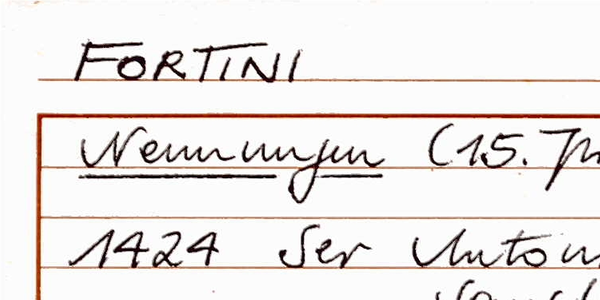 FORTINI
Nennungen (15.
1424 Ser